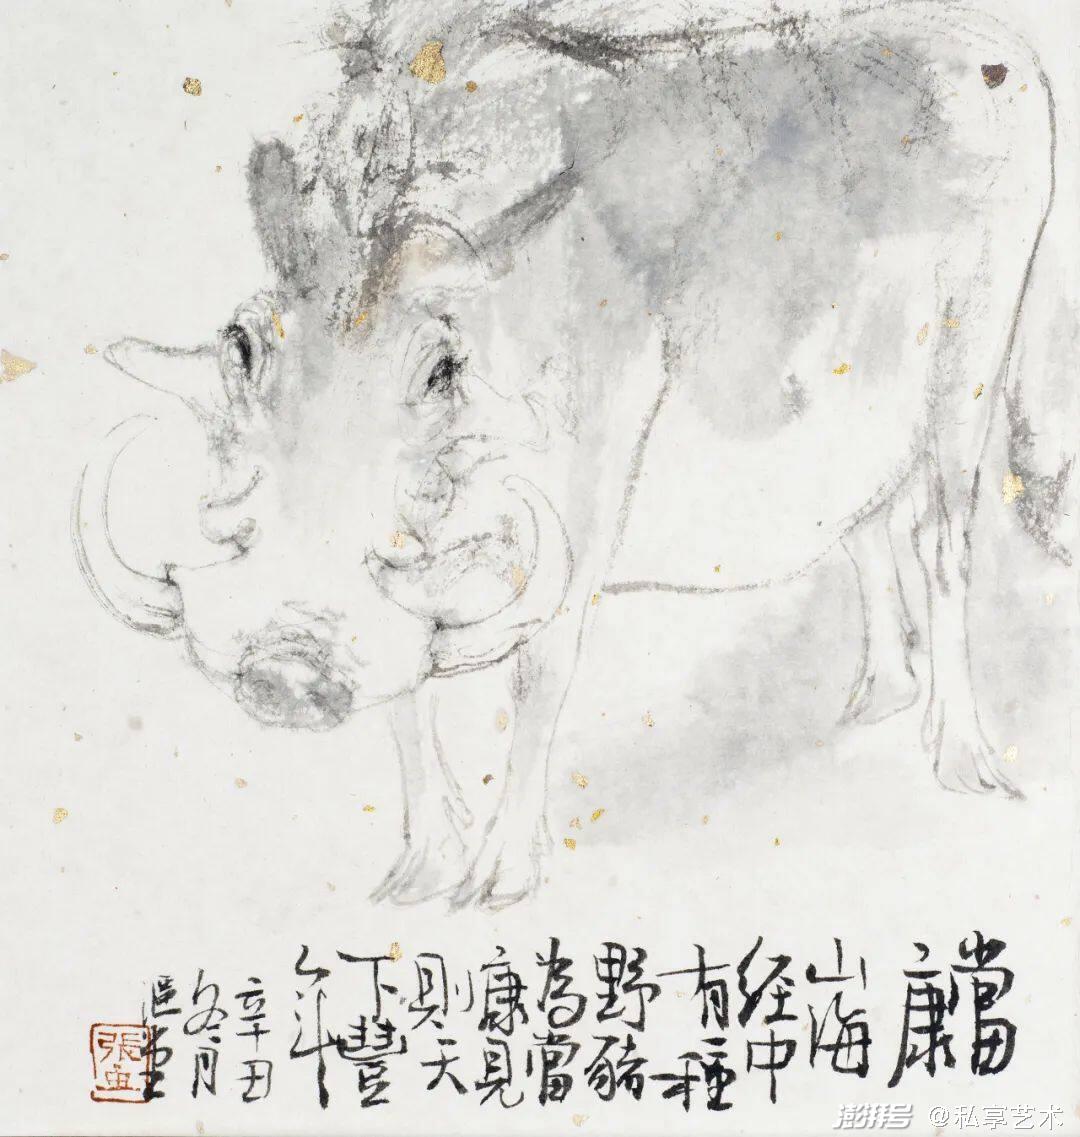 當康
山海
经中
有種
野豬
為當
康見
則天
下豐
年
辛丑
冬月
堂
張
澎湃号 @私享艺术